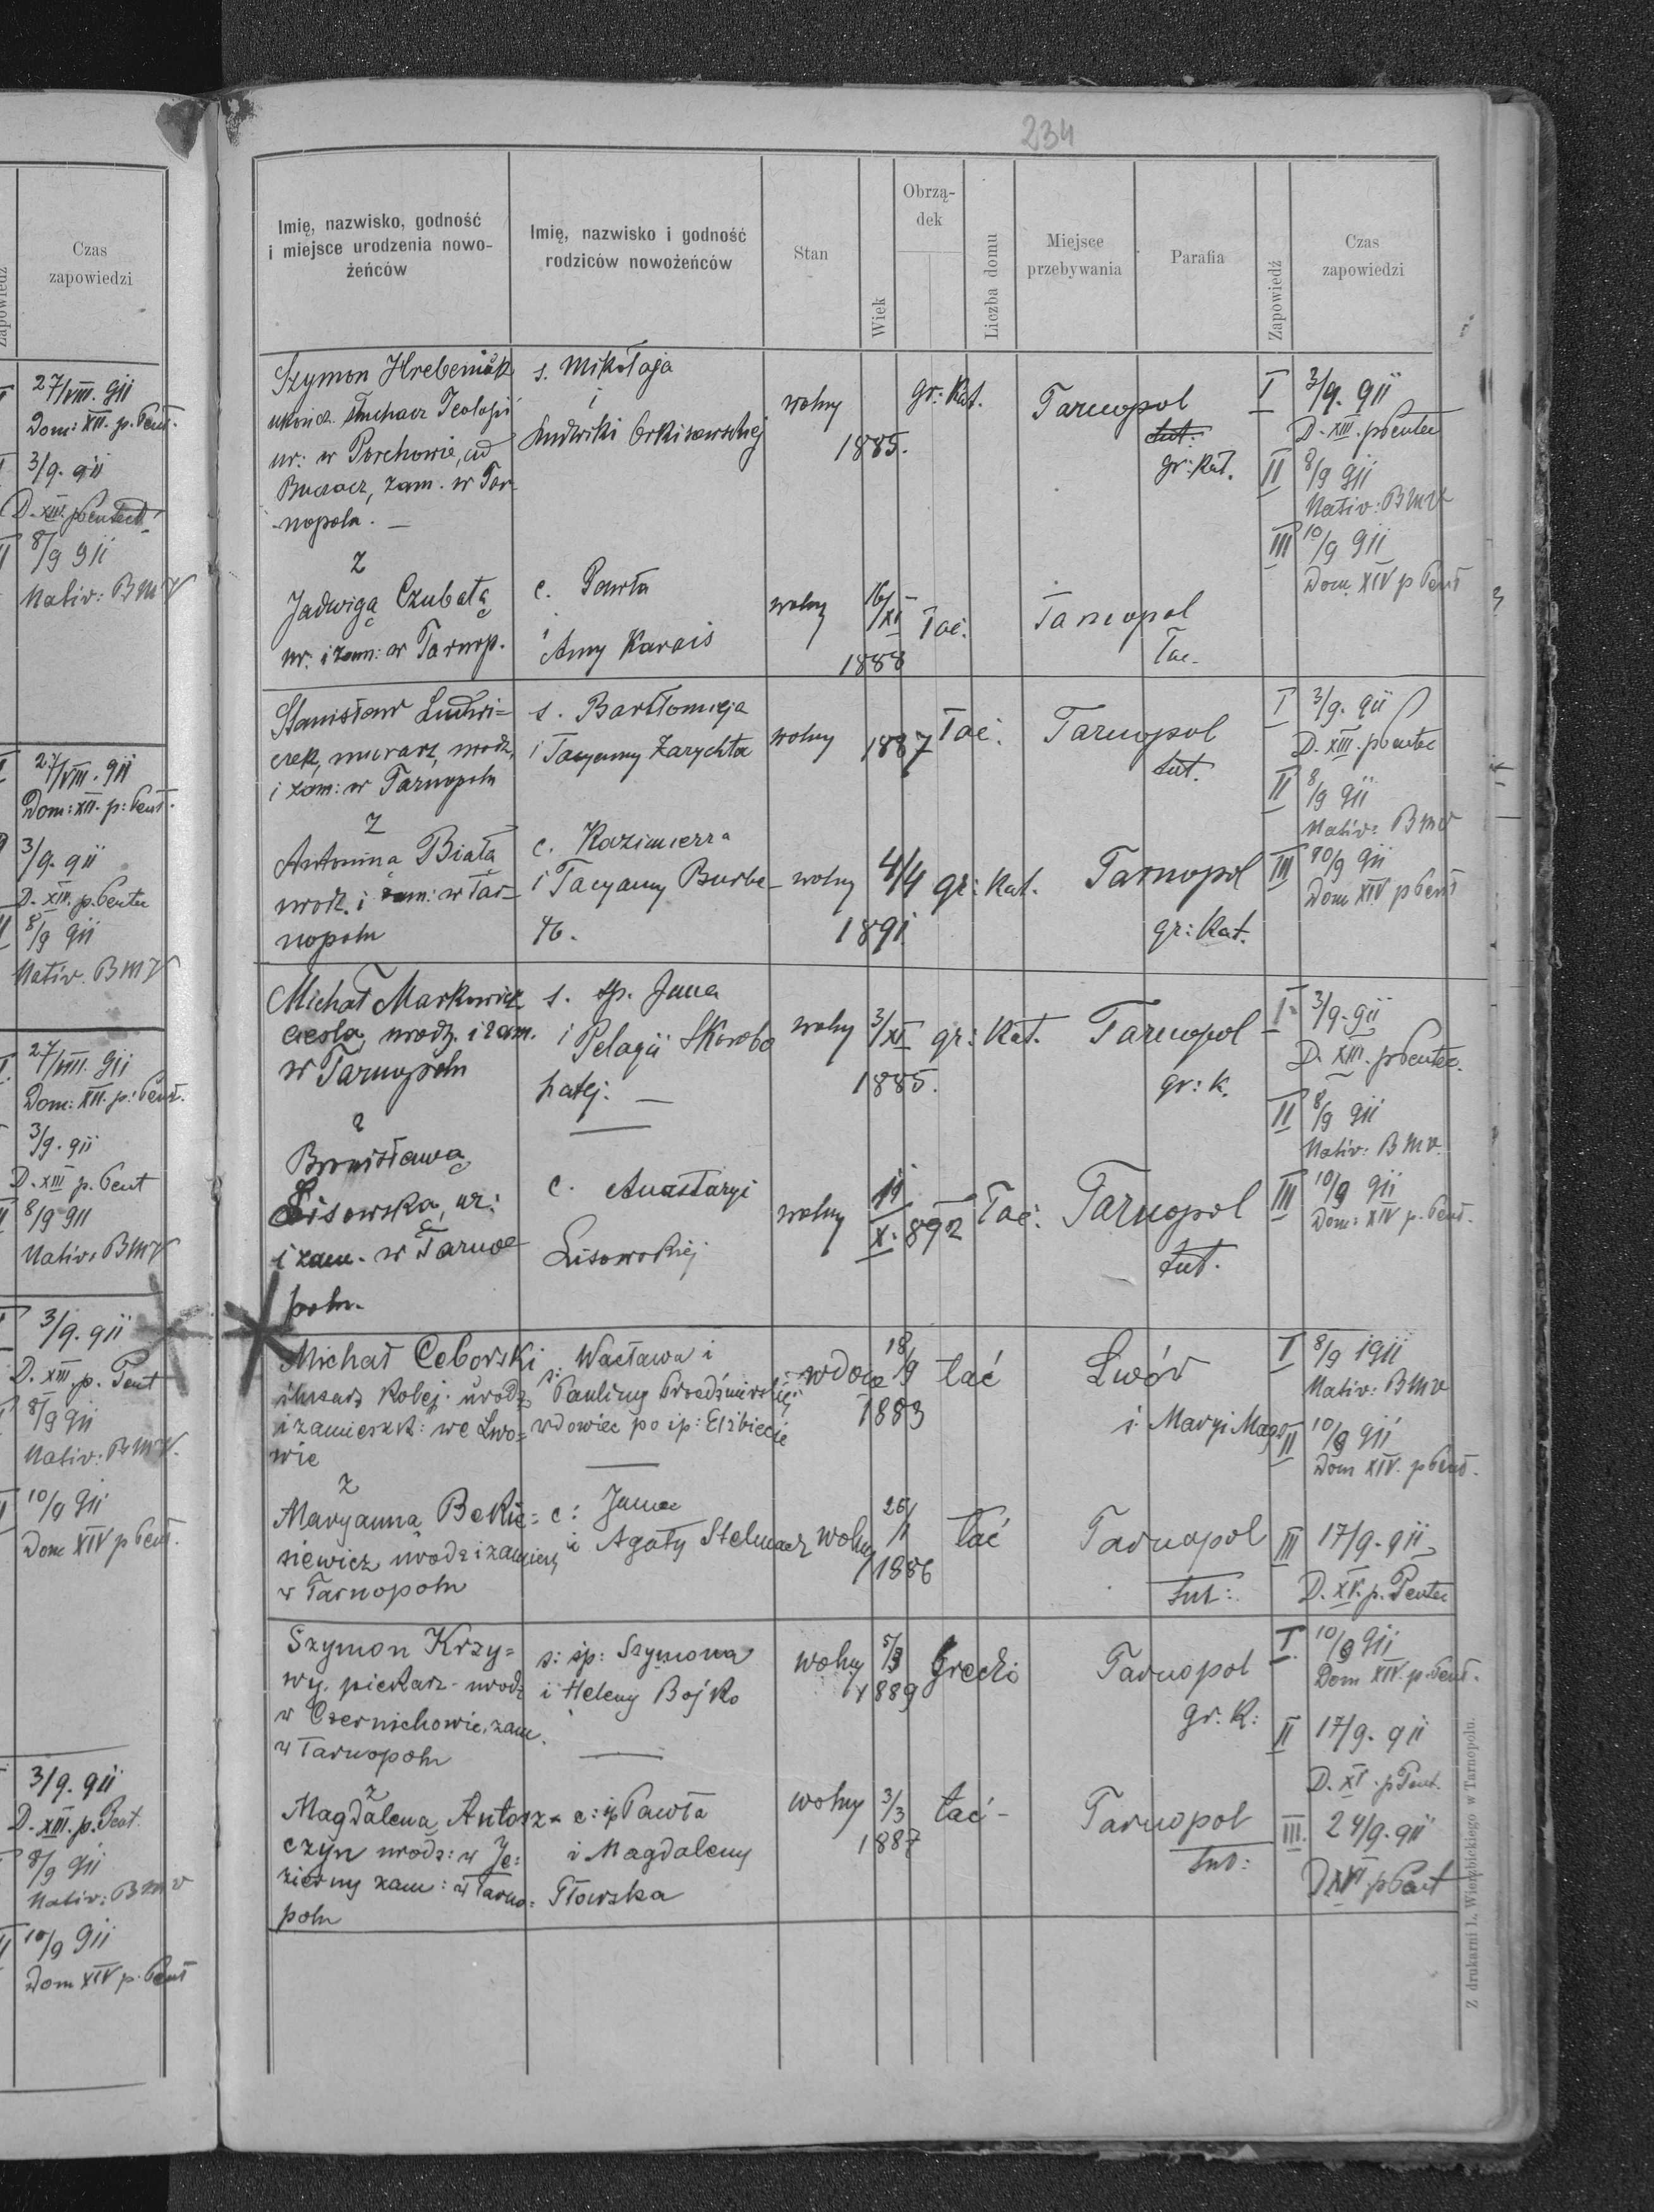 234
Imię, nazwisko, godność
i miejsce urodzenia nowo-
żeńców
Imię, nazwisko i godność
rodziców nowożeńców
Stan
Wiek
Obrzą-
dek
Liczba domu
Miejsce
przebywania
Parafia
Zapowiedź
Czas
zapowiedzi
Szymon Hrebeniak
słuchacz Teologii
ur: w Porchowie, ad
Buczacz, zam. w Tar-
nopolu. —
s. Mikołaja
i
Ludwiki
wolny
1885.
gr: Kat.
Tarnopol
tut:
gr: Kat.
I 3/9. 911
D. XIII. p Pentec
II 8/9 911
Nativ: BMV
III 10/9 911
Dom XIV p Pent
z
Jadwigą Czubatą
ur. i zam: w Tarnop.
c. Pawła
i
Anny Karais
wolny
16/XI
1888
łać.
Tarnopol
łac.
Stanisław Ludwi=
czek, murarz, urodz.
i zam: w Tarnopolu
s. Bartłomieja
i Tacyanny Zarychta
wolny
1887
łać.
Tarnopol
tut.
I 3/9. 911
D. XIII. p Pentec
II 8/9 911
Nativ: BMV
III 10/9 911
Dom XIV p Pent
z
Antoniną Białą
urodz. i zam: w Tar-
nopolu
c. Kazimierza
i Tacyanny
wolny
4/4
1891
gr: Kat.
Tarnopol
gr: Kat.
Michał Markowicz
cieśla, urodz. i zam.
w Tarnopolu
s. śp. Jana
i Pelagii Skoroba
hatej. —
wolny
3/XI
1885.
gr: Kat.
Tarnopol
gr: k.
I 3/9. 911
D. XIII. p Pentec.
II 8/9 911
Nativ: BMV.
III 10/9 911
Dom: XIV p. Pent.
z
Bronisławą
Lisowską, ur:
i zam. w Tarno
polu.
c. Anastazyi
Lisowskiej
wolny
11
X. 892
łać:
Tarnopol
tut.
Michał Ceborski
ślusarz kolej. urodz
i zamieszk: we Lwo=
wie
s: Wacława i
Pauliny
wdowiec po śp: Elżbiecie
wdow
18/9
1883
łać
Lwów
i Maryi Magd
I 8/9 1911
Nativ: BMV
II 10/9 911
Dom XIV. p Pent.
z
Maryanna Bekie=
siewicz urodz i zamiesz
w Tarnopolu
c: Jana
i Agaty Stelmach
wolny
26/1
1886
łać
Tarnopol
tut:
III 17/9. 911
D. XV. p. Pentec
Szymon Krzy=
wy. piekarz. urodz
w Czernichowie, zam.
w Tarnopolu
s: śp: Szymona
i Heleny Bojko
wolny
5/3
1889
Grecki
Tarnopol
gr. k:
I. 10/9 911
Dom XIV. p. Pent.
II 17/9. 911
D. XV. p Pent.
III. 24/9. 911
D XVI p Pent
z
Magdalena Antosz-
czyn urodz: w Je=
zierny zam: w Tarno=
polu
c: śp Pawła
i Magdaleny
Głowska
wolny
3/3
1887
łać-
Tarnopol
tut:
Z drukarni L. Wierzbickiego w Tarnopolu.
Zapowiedź
Czas
zapowiedzi
27/VIII. 911
Dom: XII. p. Pent.
3/9. 911
D. XIII. p Pentec
8/9 911
Nativ: BMV
27/VIII. 911
Dom: XII. p: Pent.
3/9. 911
D. XIII. p. Pentec
8/9 911
Nativ. BMV
27/VIII. 911
Dom: XII. p: Pent.
3/9. 911
D. XIII p. Pent
8/9 911
Nativ: BMV
3/9. 911
D. XIII. p. Pent
8/9 911
Nativ: BMV.
10/9 911
Dom XIV p Pent.
3/9. 911
D. XIII. p. Pent.
8/9 911
Nativ: BMV
10/9 911
Dom XIV p. Pent